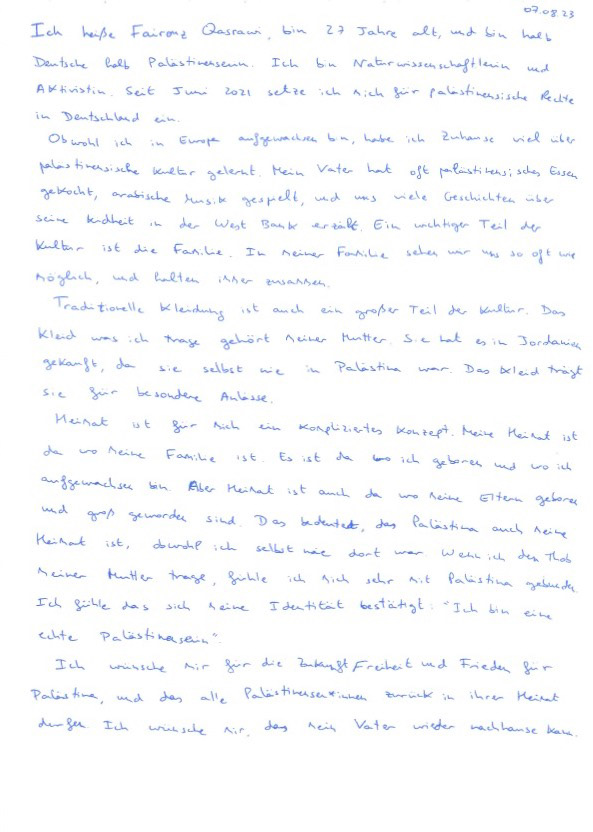 07.08.23
Ich heiße Fairouz Qasrawi, bin 27 Jahre alt, und bin halb
Deutsche halb Palästinenserin. Ich bin Naturwissenschaftlerin und
Aktivistin. Seit Juni 2021 setze ich mich für palästinensische Rechte
in Deutschland ein.
Obwohl ich in Europa aufgewachsen bin, habe ich Zuhause viel über
palästinensische Kultur gelernt. Mein Vater hat oft palästinensisches Essen
gekocht, arabische Musik gespielt, und uns viele Geschichten über
seine Kindheit in der West Bank erzählt. Ein wichtiger Teil der
Kultur ist die Familie. In meiner Familie sehen wir uns so oft wie
möglich, und halten immer zusammen.
Traditionelle Kleidung ist auch ein großer Teil der Kultur. Das
Kleid was ich trage gehört meiner Mutter. Sie hat es in Jordanien
gekauft, da sie selbst nie in Palästina war. Das Kleid trägt
sie für besondere Anlässe.
Heimat ist für mich ein kompliziertes Konzept. Meine Heimat ist
da wo meine Familie ist. Es ist da wo ich geboren und wo ich
aufgewachsen bin. Aber Heimat ist auch da wo meine Eltern geboren
und groß geworden sind. Das bedeutet, das Palästina auch meine
Heimat ist, obwohl ich selbst nie dort war. Wenn ich den Thob
meiner Mutter trage, fühle ich mich sehr mit Palästina gebunden.
Ich fühle das sich meine Identität bestätigt: "Ich bin eine
echte Palästinenserin".
Ich wünsche mir für die Zukunft Freiheit und Frieden für
Palästina, und das alle Palästinenser*innen zurück in ihrer Heimat
dürfen. Ich wünsche mir, das mein Vater wieder nachhause kann.